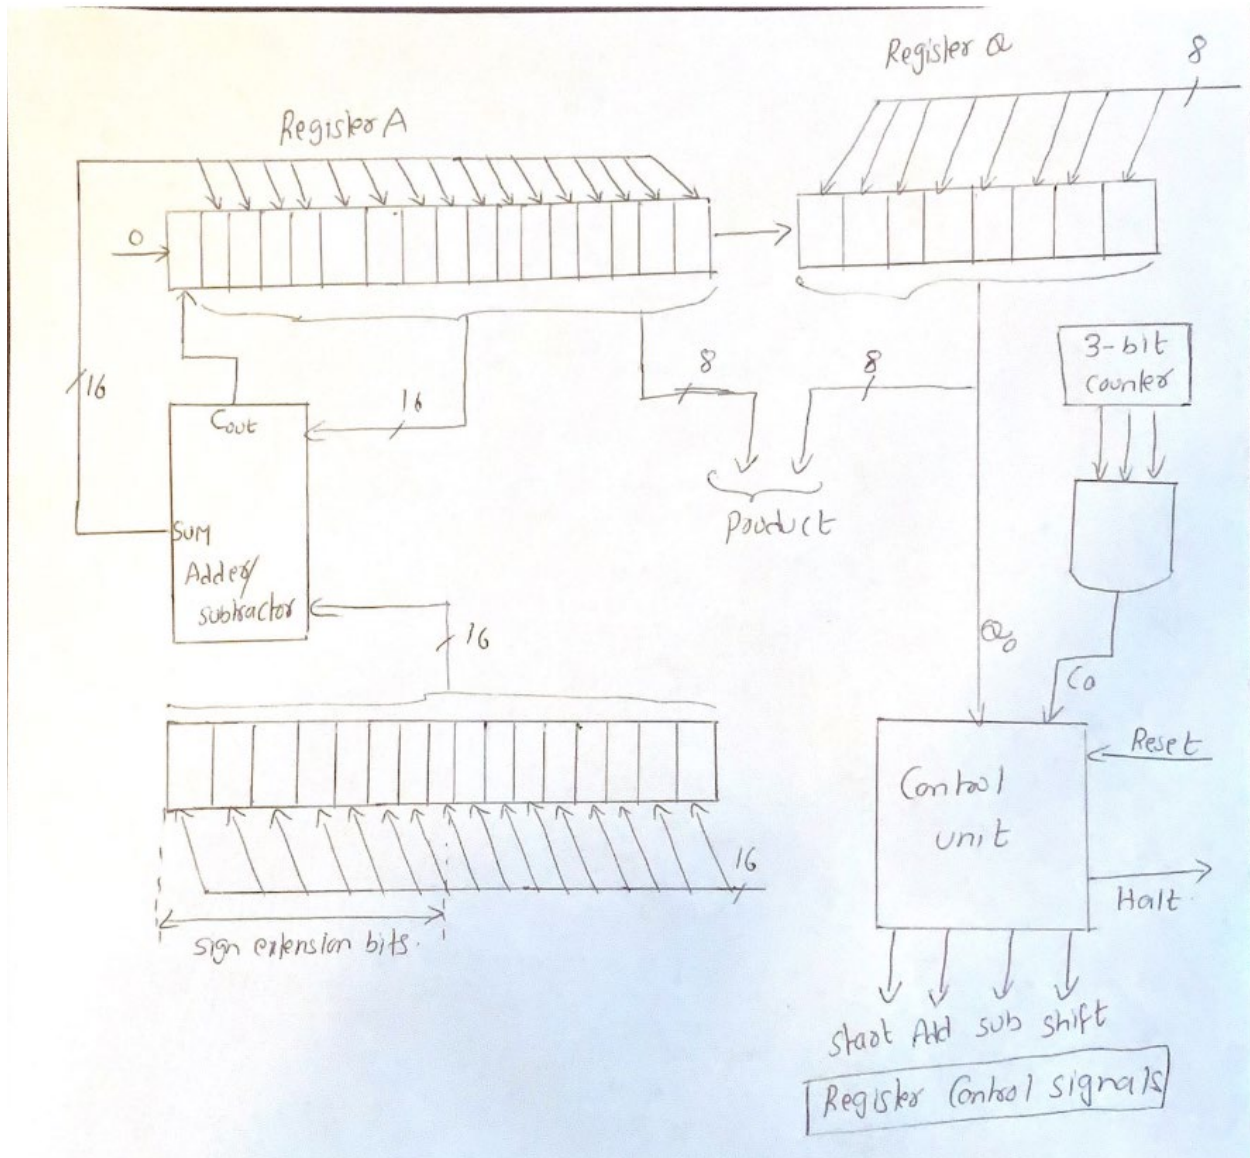 Register Q
8
Register A
0
16
16
8
8
3-bit
counter
Cout
SUM
Adder/
subtractor
Product
16
Q0
C0
Reset
Control
unit
Halt
16
sign extension bits.
start Add sub shift
Register Control signals